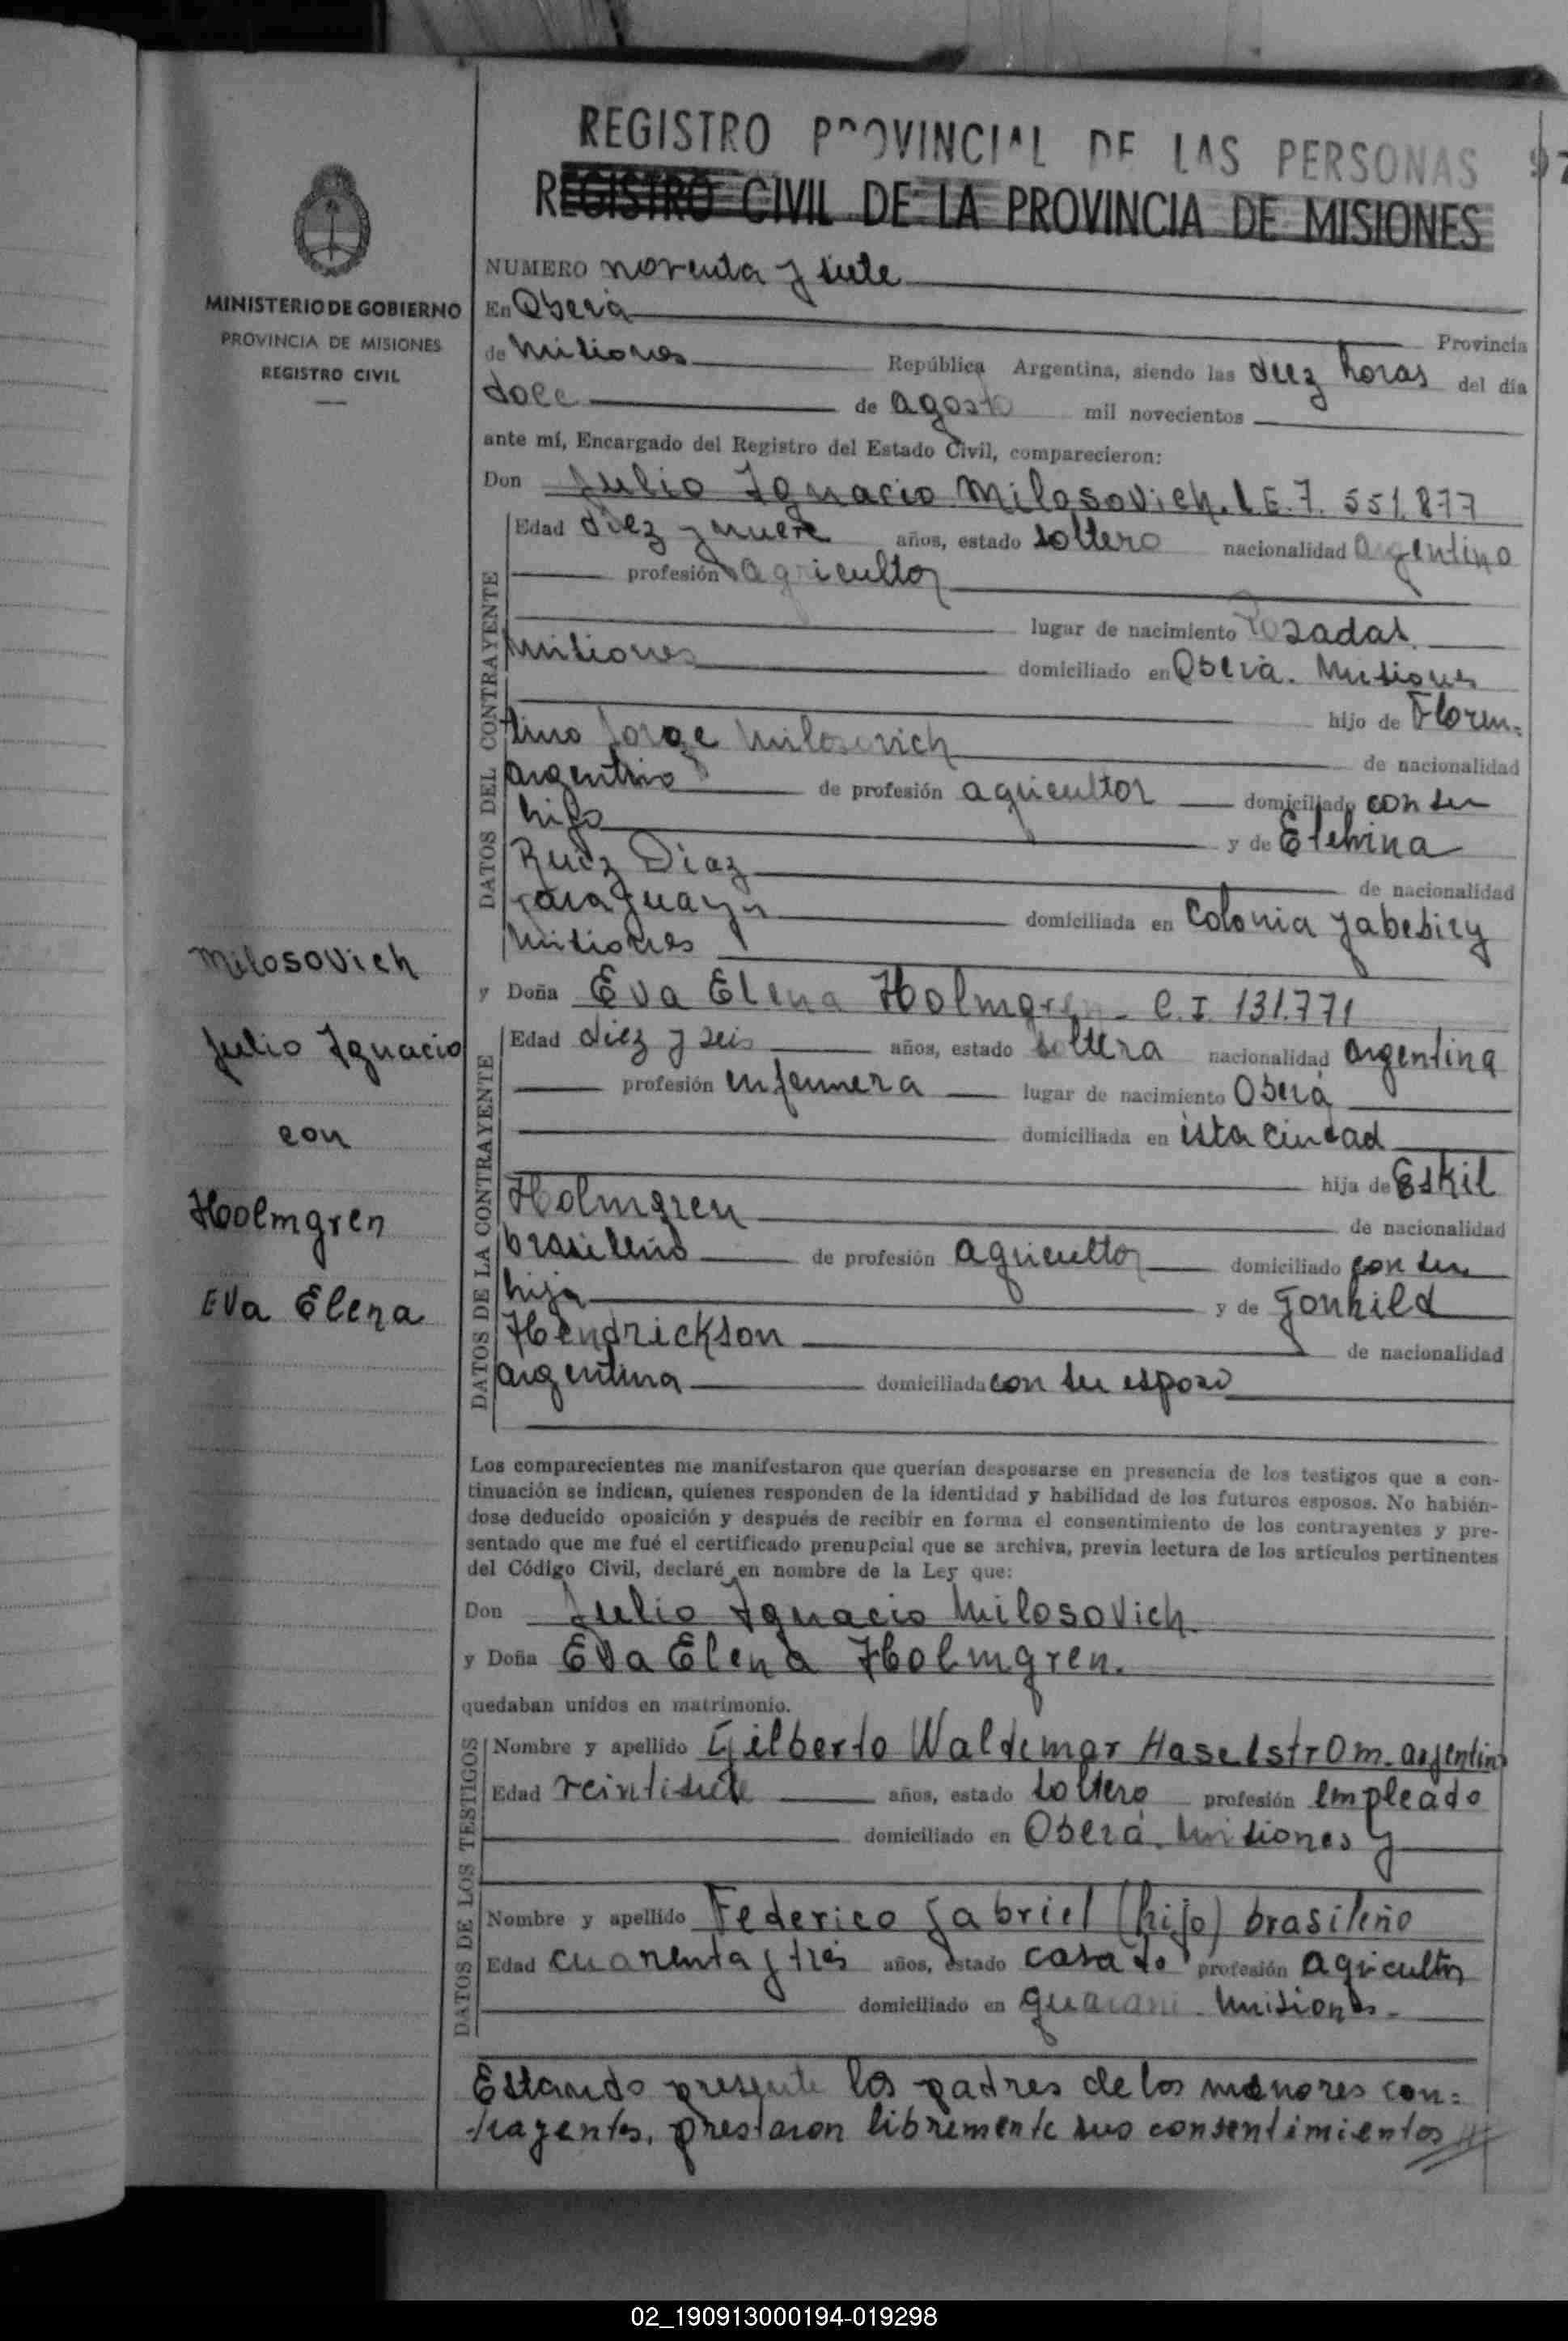 REGISTRO PROVINCIAL DE LAS PERSONAS 97
REGISTRO CIVIL DE LA PROVINCIA DE MISIONES
MINISTERIO DE GOBIERNO
PROVINCIA DE MISIONES
REGISTRO CIVIL
Milosovich
Julio Ignacio
con
Holmgren
Eva Elena
NUMERO noventa y siete
En Oberá Provincia
de Misiones República Argentina, siendo las diez horas del día
doce de agosto mil novecientos
ante mí, Encargado del Registro del Estado Civil, comparecieron:
Don Julio Ignacio Milosovich. L E. 7. 551.877
DATOS DEL CONTRAYENTE
Edad diez y nueve años, estado soltero nacionalidad argentino
profesión agricultor
lugar de nacimiento Posadas.
Misiones domiciliado en Oberá. Misiones
hijo de Floren-
tino Jorge Milosovich de nacionalidad
argentino de profesión agricultor domiciliado con su
hijo y de Etelvina
Ruiz Diaz de nacionalidad
paraguaya domiciliada en Colonia Yabebiry
Misiones
y Doña Eva Elena Holmgren - C. I. 131.771
DATOS DE LA CONTRAYENTE
Edad diez y seis años, estado soltera nacionalidad argentina
profesión enfermera lugar de nacimiento Oberá
domiciliada en ésta ciudad
hija de Eskil
Holmgren de nacionalidad
brasileño de profesión agricultor domiciliado con su
hija y de Gonhild
Hendrickson de nacionalidad
argentina domiciliada con su esposo
Los comparecientes me manifestaron que querían desposarse en presencia de los testigos que a con-
tinuación se indican, quienes responden de la identidad y habilidad de los futuros esposos. No habién-
dose deducido oposición y después de recibir en forma el consentimiento de los contrayentes y pre-
sentado que me fué el certificado prenupcial que se archiva, previa lectura de los artículos pertinentes
del Código Civil, declaré en nombre de la Ley que:
Don Julio Ignacio Milosovich.
y Doña Eva Elena Holmgren.
quedaban unidos en matrimonio.
DATOS DE LOS TESTIGOS
Nombre y apellido Gilberto Waldemar Haselstrom. argentino
Edad veintisiete años, estado soltero profesión empleado
domiciliado en Oberá. Misiones y
Nombre y apellido Federico Gabriel (hijo) brasileño
Edad cuarenta y tres años, estado casado profesión agricultor
domiciliado en guarani - Misiones.-
Estando presente los padres de los menores con-
trayentes, prestaron libremente sus consentimientos
02_190913000194-019298